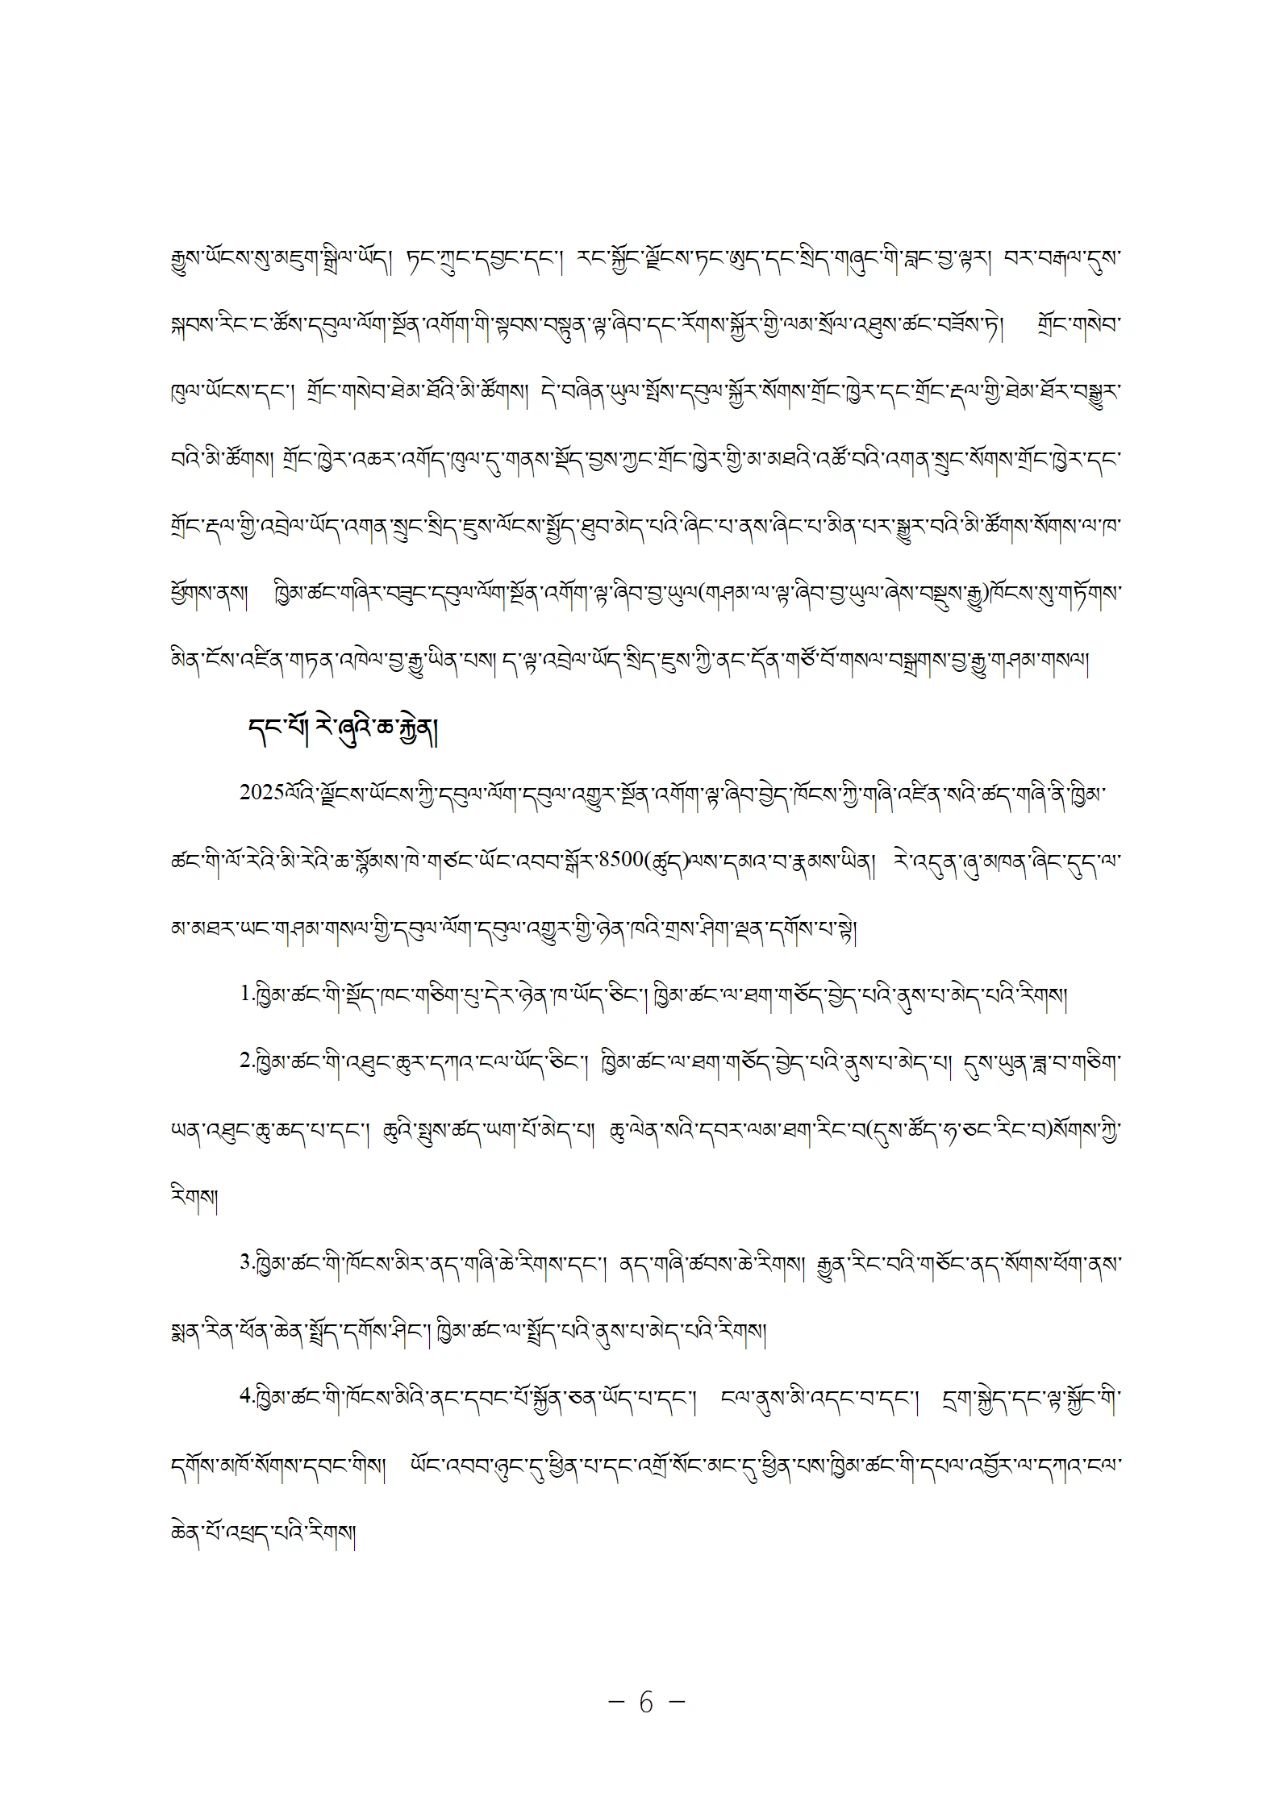 རྒྱུས་ཡོངས་སུ་མཇུག་སྒྲིལ་ཡོད། ཏང་ཀྲུང་དབྱང་དང་། རང་སྐྱོང་ལྗོངས་ཏང་ཨུད་དང་སྲིད་གཞུང་གི་བླང་བྱ་ལྟར། བར་བརྒལ་དུས་
སྐབས་རིང་ང་ཚོས་དབུལ་ལོག་སྔོན་འགོག་གི་སྟབས་བསྟུན་ལྟ་ཞིབ་དང་རོགས་སྐྱོར་གྱི་ལམ་སྲོལ་འཐུས་ཚང་བཟོས་ཏེ། གྲོང་གསེབ་
ཁུལ་ཡོངས་དང་། གྲོང་གསེབ་ཐེམ་ཐོའི་མི་ཚོགས། དེ་བཞིན་ཡུལ་སྤོས་དབུལ་སྐྱོར་སོགས་གྲོང་ཁྱེར་དང་གྲོང་རྡལ་གྱི་ཐེམ་ཐོར་བསྒྱུར་
བའི་མི་ཚོགས། གྲོང་ཁྱེར་འཆར་འགོད་ཁུལ་དུ་གནས་སྡོད་བྱས་ཀྱང་གྲོང་ཁྱེར་གྱི་མ་མཐའི་འཚོ་བའི་འགན་སྲུང་སོགས་གྲོང་ཁྱེར་དང་
གྲོང་རྡལ་གྱི་འབྲེལ་ཡོད་འགན་སྲུང་སྲིད་ཇུས་ལོངས་སྤྱོད་ཐུབ་མེད་པའི་ཞིང་པ་ནས་ཞིང་པ་མིན་པར་སྒྱུར་བའི་མི་ཚོགས་སོགས་ལ་ཁ་
ཕྱོགས་ནས། ཁྱིམ་ཚང་གཞིར་བཟུང་དབུལ་ལོག་སྔོན་འགོག་ལྟ་ཞིབ་བྱ་ཡུལ(གཤམ་ལ་ལྟ་ཞིབ་བྱ་ཡུལ་ཞེས་བསྡུས་རྒྱུ)ཁོངས་སུ་གཏོགས་
མིན་ངོས་འཛིན་གཏན་འཁེལ་བྱ་རྒྱུ་ཡིན་པས། ད་ལྟ་འབྲེལ་ཡོད་སྲིད་ཇུས་ཀྱི་ནང་དོན་གཙོ་བོ་གསལ་བསྒྲགས་བྱ་རྒྱུ་གཤམ་གསལ།
དང་པོ། རེ་ཞུའི་ཆ་རྐྱེན།
2025ལོའི་ལྗོངས་ཡོངས་ཀྱི་དབུལ་ལོག་དབུལ་འགྱུར་སྔོན་འགོག་ལྟ་ཞིབ་བྱེད་ཁོངས་ཀྱི་གཞི་འཛིན་སའི་ཚད་གཞི་ནི་ཁྱིམ་
ཚང་གི་ལོ་རེའི་མི་རེའི་ཆ་སྙོམས་ཁེ་གཙང་ཡོང་འབབ་སྒོར་8500(ཚུད)ལས་དམའ་བ་རྣམས་ཡིན། རེ་འདུན་ཞུ་མཁན་ཞིང་དུད་ལ་
མ་མཐར་ཡང་གཤམ་གསལ་གྱི་དབུལ་ལོག་དབུལ་འགྱུར་གྱི་ཉེན་ཁའི་གྲས་ཤིག་ལྡན་དགོས་པ་སྟེ།
1.ཁྱིམ་ཚང་གི་སྡོད་ཁང་གཅིག་པུ་དེར་ཉེན་ཁ་ཡོད་ཅིང་། ཁྱིམ་ཚང་ལ་ཐག་གཅོད་བྱེད་པའི་ནུས་པ་མེད་པའི་རིགས།
2.ཁྱིམ་ཚང་གི་འཐུང་ཆུར་དཀའ་ངལ་ཡོད་ཅིང་། ཁྱིམ་ཚང་ལ་ཐག་གཅོད་བྱེད་པའི་ནུས་པ་མེད་པ། དུས་ཡུན་ཟླ་བ་གཅིག་
ཡན་འཐུང་ཆུ་ཆད་པ་དང་། ཆུའི་སྤུས་ཚད་ཡག་པོ་མེད་པ། ཆུ་ལེན་སའི་དབར་ལམ་ཐག་རིང་བ(དུས་ཚོད་ཧ་ཅང་རིང་བ)སོགས་ཀྱི་
རིགས།
3.ཁྱིམ་ཚང་གི་ཁོངས་མིར་ནད་གཞི་ཆེ་རིགས་དང་། ནད་གཞི་ཚབས་ཆེ་རིགས། རྒྱུན་རིང་བའི་གཅོང་ནད་སོགས་ཕོག་ནས་
སྨན་རིན་ཕོན་ཆེན་སྤྲོད་དགོས་ཤིང་། ཁྱིམ་ཚང་ལ་སྤྲོད་པའི་ནུས་པ་མེད་པའི་རིགས།
4.ཁྱིམ་ཚང་གི་ཁོངས་མིའི་ནང་དབང་པོ་སྐྱོན་ཅན་ཡོད་པ་དང་། ངལ་ནུས་མི་འདང་བ་དང་། དྲག་སྐྱེད་དང་ལྟ་སྐྱོང་གི་
དགོས་མཁོ་སོགས་དབང་གིས། ཡོང་འབབ་ཉུང་དུ་ཕྱིན་པ་དང་འགྲོ་སོང་མང་དུ་ཕྱིན་པས་ཁྱིམ་ཚང་གི་དཔལ་འབྱོར་ལ་དཀའ་ངལ་
ཆེན་པོ་འཕྲད་པའི་རིགས།
- 6 -